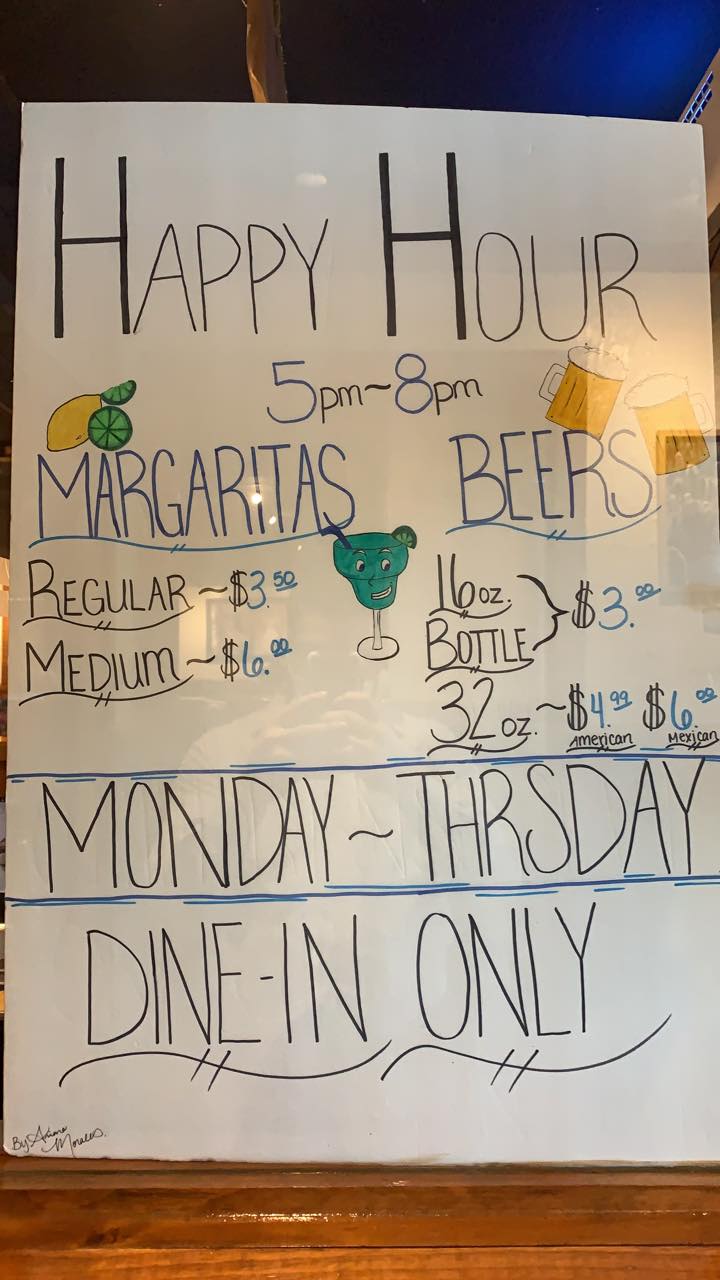 HAPPY HOUR
5pm~8pm
MARGARITAS
REGULAR ~ $3.50
MEDIUM ~ $6.00
BEERS
16oz.
BOTTLE
$3.00
32oz. ~ $4.99 $6.00
American Mexican
MONDAY ~ THRSDAY
DINE-IN ONLY
By: Morales.